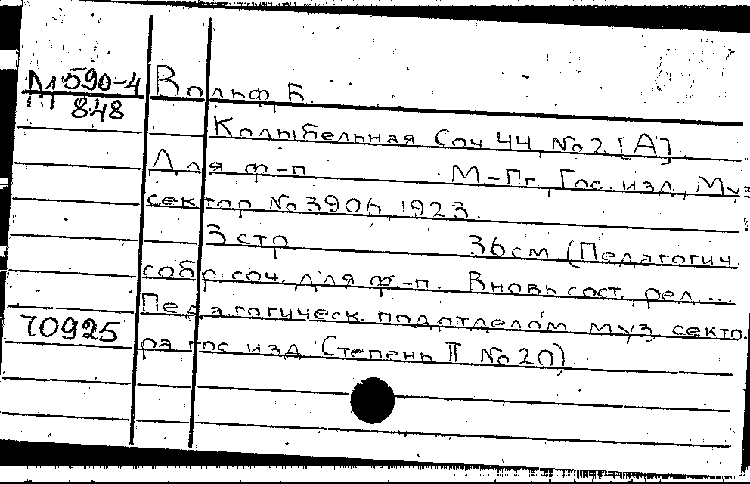 М 590-4
848
Вольф Б.
Колыбельная Соч. 44, No 2 [A]
Для ф-п М-Пг, Гос. изд., Муз
сектор No 3906, 1923.
3 стр. 36 см (Педагогич.
собр. соч. для ф-п. Вновь сост., ред...
Педагогическ. подотделом муз. секто-
70925
ра гос. изд. Степень II No 20)